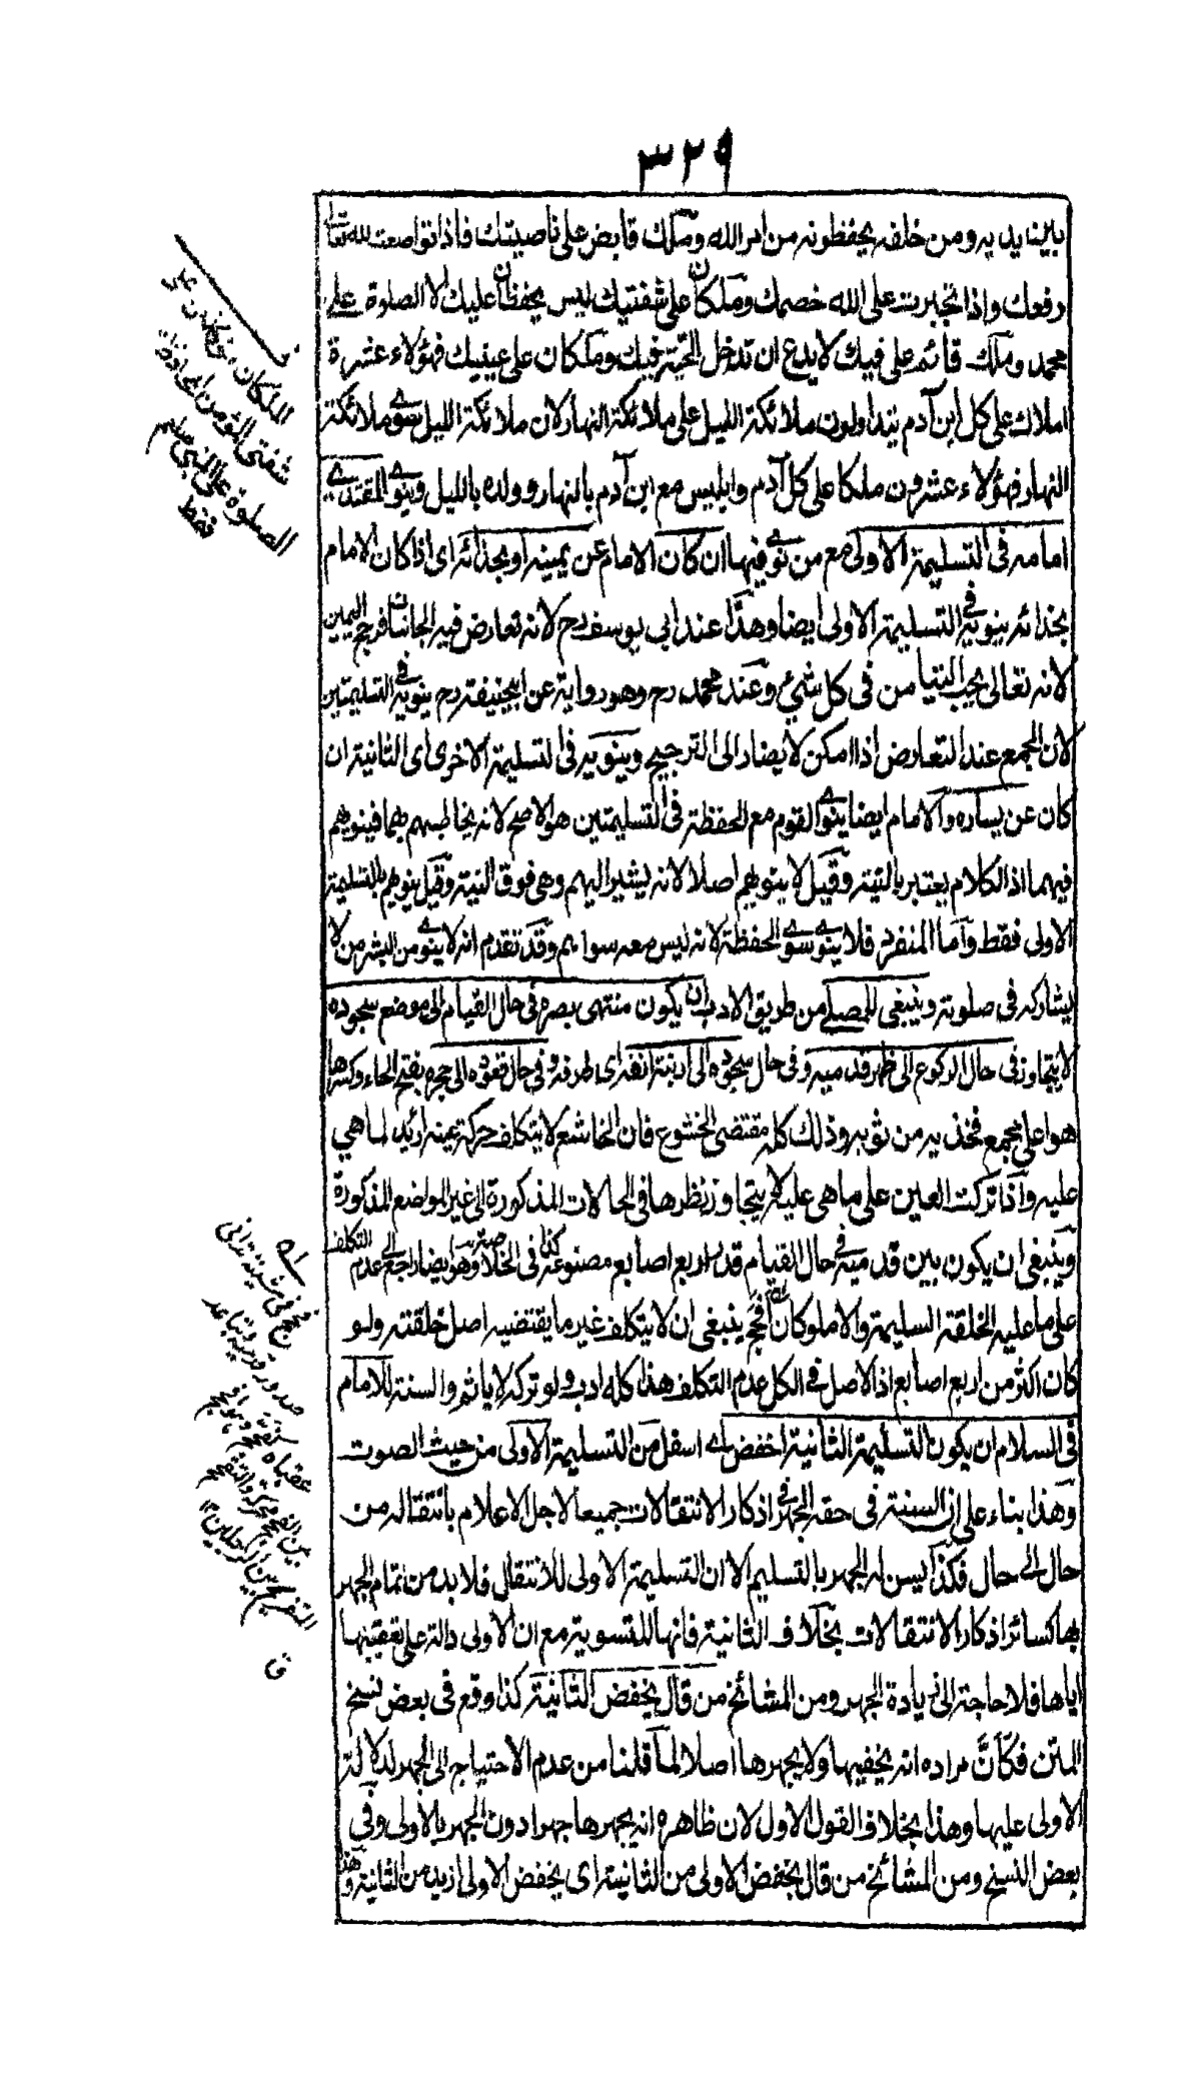 ٣٢٩
بين يديه ومن خلفه يحفظونه من امر الله وملك قابض على ناصيتك فاذا تواضعت لله تعالى
رفعك واذا تجبرت على الله خصمك وملكان على شفتيك ليس يحفظان عليك الا الصلوة على
محمد وملك قائم على فيك لا يدع ان تدخل الحية فيك وملكان على عينيك فهؤلاء عشرة
املاك على كل ابن آدم يتداولون ملائكة الليل على ملائكة النهار لان ملائكة الليل سوى ملائكة
النهار فهؤلاء عشرون ملكا على كل آدم وابليس مع ابن آدم بالنهار وولده بالليل وينوى المقتدى
امامه فى التسليمة الاولى مع من نوى فيها ان كان الامام عن يمينه او بحذائه اى اذا كان الامام
بحذائه ينويه فى التسليمة الاولى ايضا وهذا عند ابى يوسف رح لانه تعارض فيه الجانبان فرجح اليمين
لانه تعالى يحب التيامن فى كل شئ وعند محمد رح وهو رواية عن ابيحنيفة رح ينويه فى التسليمتين
لان الجمع عند التعارض اذا امكن لا يصار الى الترجيح وينويه فى التسليمة الاخرى اى الثانية ان
كان عن يساره والامام ايضا ينوى القوم مع الحفظة فى التسليمتين هو الاصح لانه يخاطبهم بهما فينويهم
فيهما اذ الكلام يعتبر بالنية وقيل لا ينويهم اصلا لانه يشير اليهم وهى فوق النية وقيل ينويهم بالتسليمة
الاولى فقط واما المنفرد فلا ينوى سوى الحفظة لانه ليس معه سواهم وقد تقدم انه لا ينوى من البشر من لا
يشاركه فى صلوته وينبغى للمصلى من طريق الادب ان يكون منتهى بصره فى حال القيام الى موضع سجوده
لا يتجاوز فى حال الركوع الى ظهر قدميه وفى حال سجوده الى ارنبة انفه اى طرفه وفى حال قعوده الى حجره بفتح الحاء وكسرها
هو اعلى مجمع فخذيه من ثوبه وذلك كله مقتضى الخشوع فان الخاشع لا يتكلف حركة عينه ازيد لما هى
عليه واذا تركت العين على ما هى عليه لا يتجاوز نظرها فى الحالات المذكورة الى غير المواضع المذكورة
وينبغى ان يكون بين قدميه فى حال القيام قدر اربع اصابع مصنوعة كذا فى الخلاصة وهو ايضا راجع الى عدم التكلف
على ما عليه الخلقة السليمة والا ملو كان افحج ينبغى ان لا يتكلف غير ما يقتضيه اصل خلقته ولو
كان اكثر من اربع اصابع اذ الاصل فى الكل عدم التكلف هذا كله ادب ولو تركه لا ياثم والسنة للامام
فى السلام ان يكون التسليمة الثانية اخفض اى اسفل من التسليمة الاولى من حيث الصوت
وهذا بناء على ان السنة فى حقه الجهر فى اذكار الانتقالات جميعا لاجل الاعلام بانتقاله من
حال الى حال فكذا يسن له الجهر بالتسليم الا ان التسليمة الاولى للانتقال فلا بد من تمام الجهر
بها كسائر اذكار الانتقالات بخلاف الثانية فانها للتسوية مع ان الاولى دالة على تعقيبها
اياها فلا حاجة الى زيادة الجهر ومن المشائخ من قال يخفض الثانية كذا وقع فى بعض نسخ
المتن فكأنَّ مراده انه يخفيها ولا يجهرها اصلا لما قلنا من عدم الاحتياج الى الجهر لدلالة
الاولى عليها وهذا بخلاف القول الاول لان ظاهره انه يجهرها جهرا دون الجهر بالاولى وفى
بعض النسخ ومن المشائخ من قال يخفض الاولى من الثانية اى يخفض الاولى ازيد من الثانية وهذا
الملكان
شفتى المؤمن
الصلوة على النبى صلعم
فقط
صدور قدميه وتباعد
عقباه
بين
التفريج بين الرجلين
ق